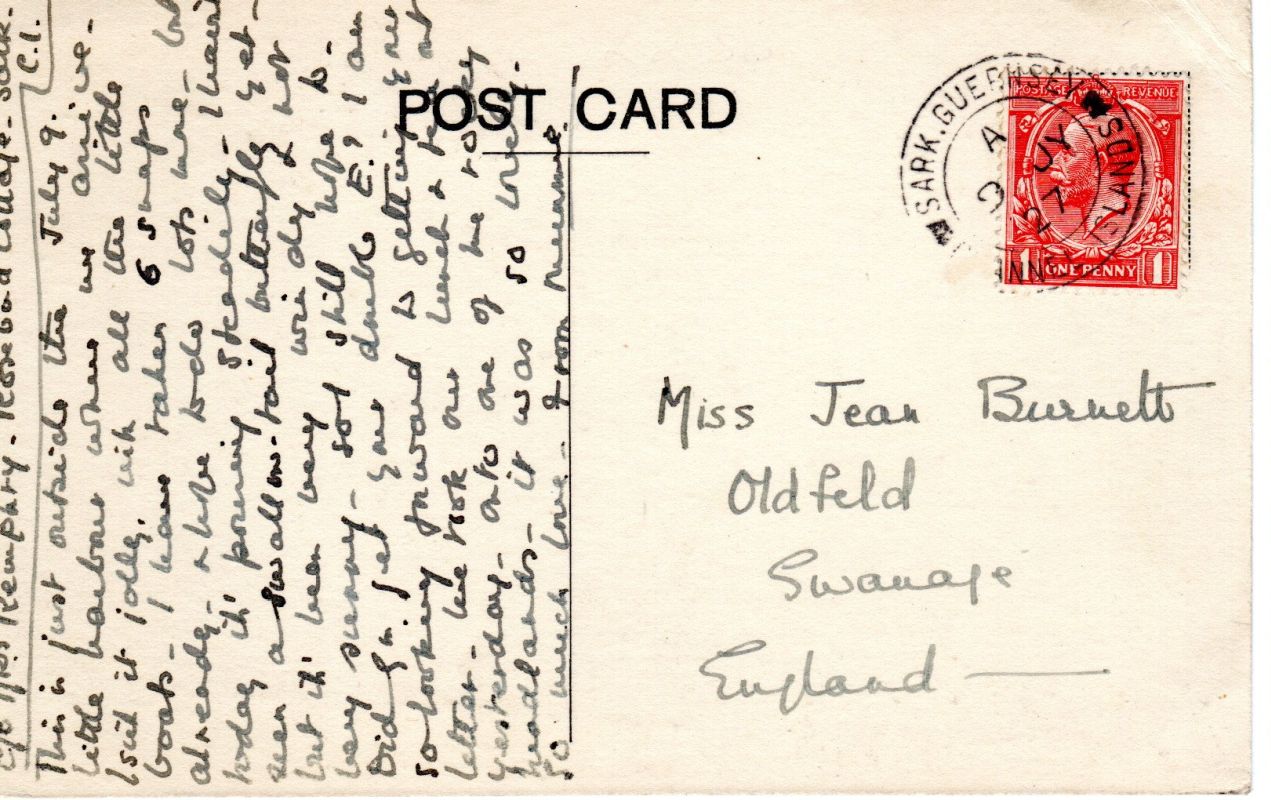 c/o Mrs Remphry - Rosebud Cottage - Sark.
C.I.
This is just outside the July 9.
little harbour where we arrive -
Isn't it jolly with all the little
boats - I have taken 6 snaps
already & hope to do lots more - but
today it's pouring steadily - I haven't
seen a swallow-tail butterfly yet -
but it's been very windy & not
very sunny - so I still hope to -
Did you get your double E? I am
so looking forward to getting your
letter - We took our lunch & tea out
yesterday - onto one of the rocky
headlands - it was so lovely.
So much love - from
POST CARD
SARK. GUERNSEY
CHANNEL ISLANDS
A
9 JY
27
POSTAGE REVENUE
1 ONE PENNY 1
Miss Jean Burnett
Oldfeld
Swanage
England